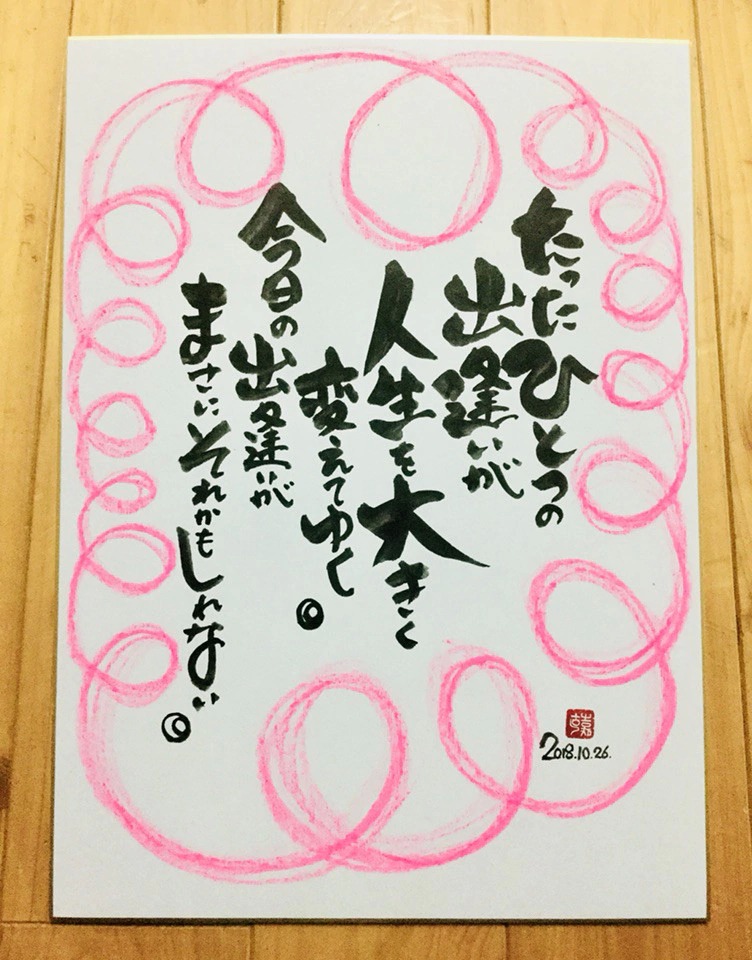 たったひとつの
出逢いが
人生を大きく
変えてゆく。
今日の出逢いが
まさにそれかもしれない。
2018.10.26.